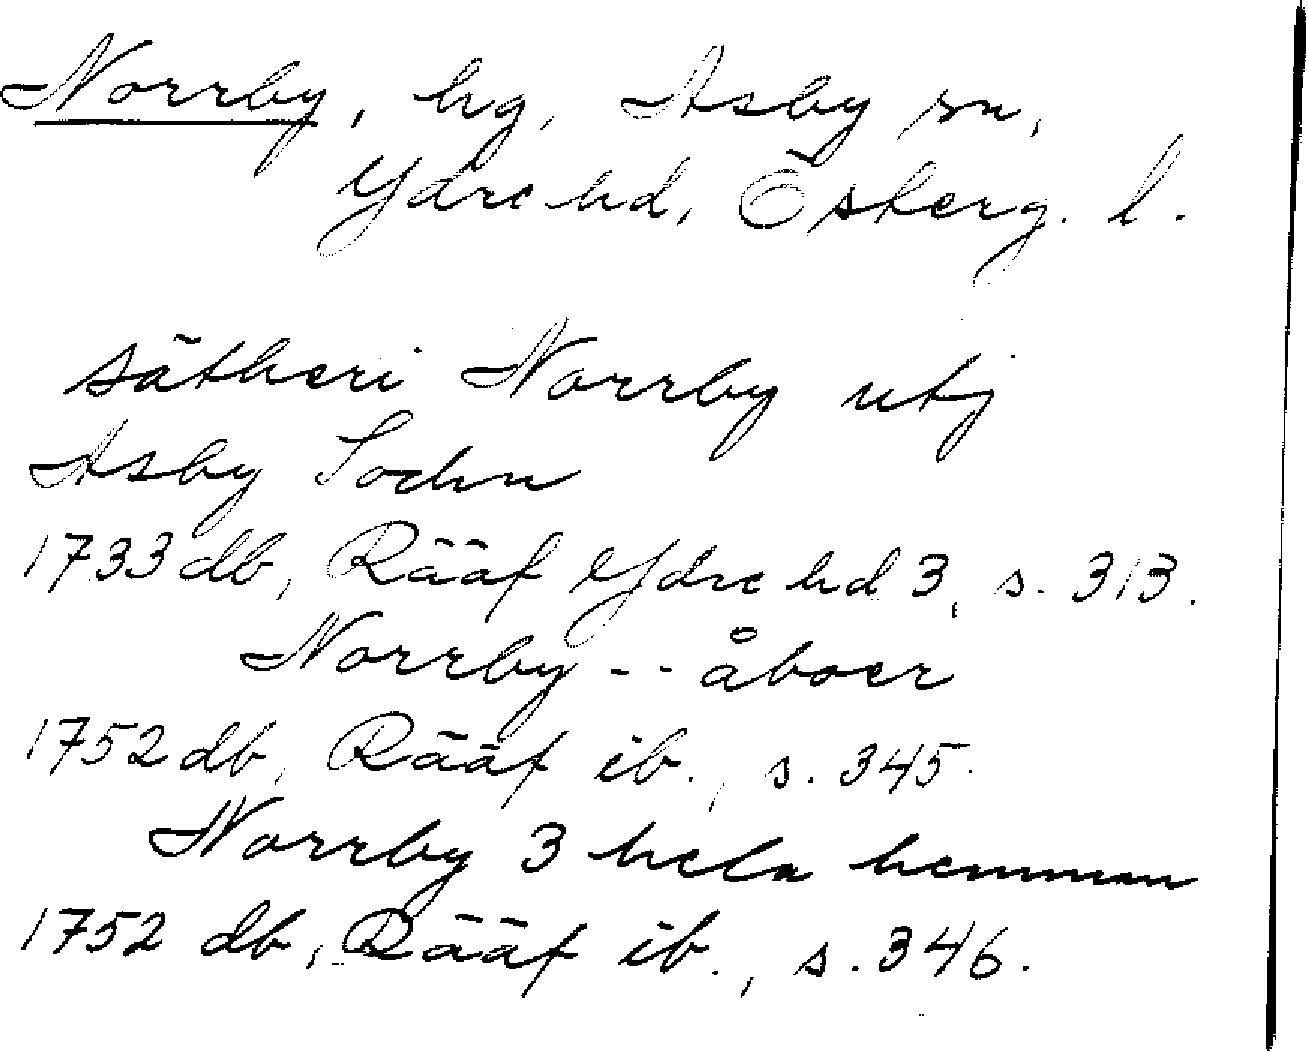 Norrby, hg, Asby sn,
Ydre hd, Österg. l.
sätheri Norrby utj
Asby Sochn
1733 db, Rääf Ydre hd 3, s. 313.
Norrby -- åboer
1752 db, Rääf ib., s. 345.
Norrby 3 hela hemman
1752 db, Rääf ib., s. 346.